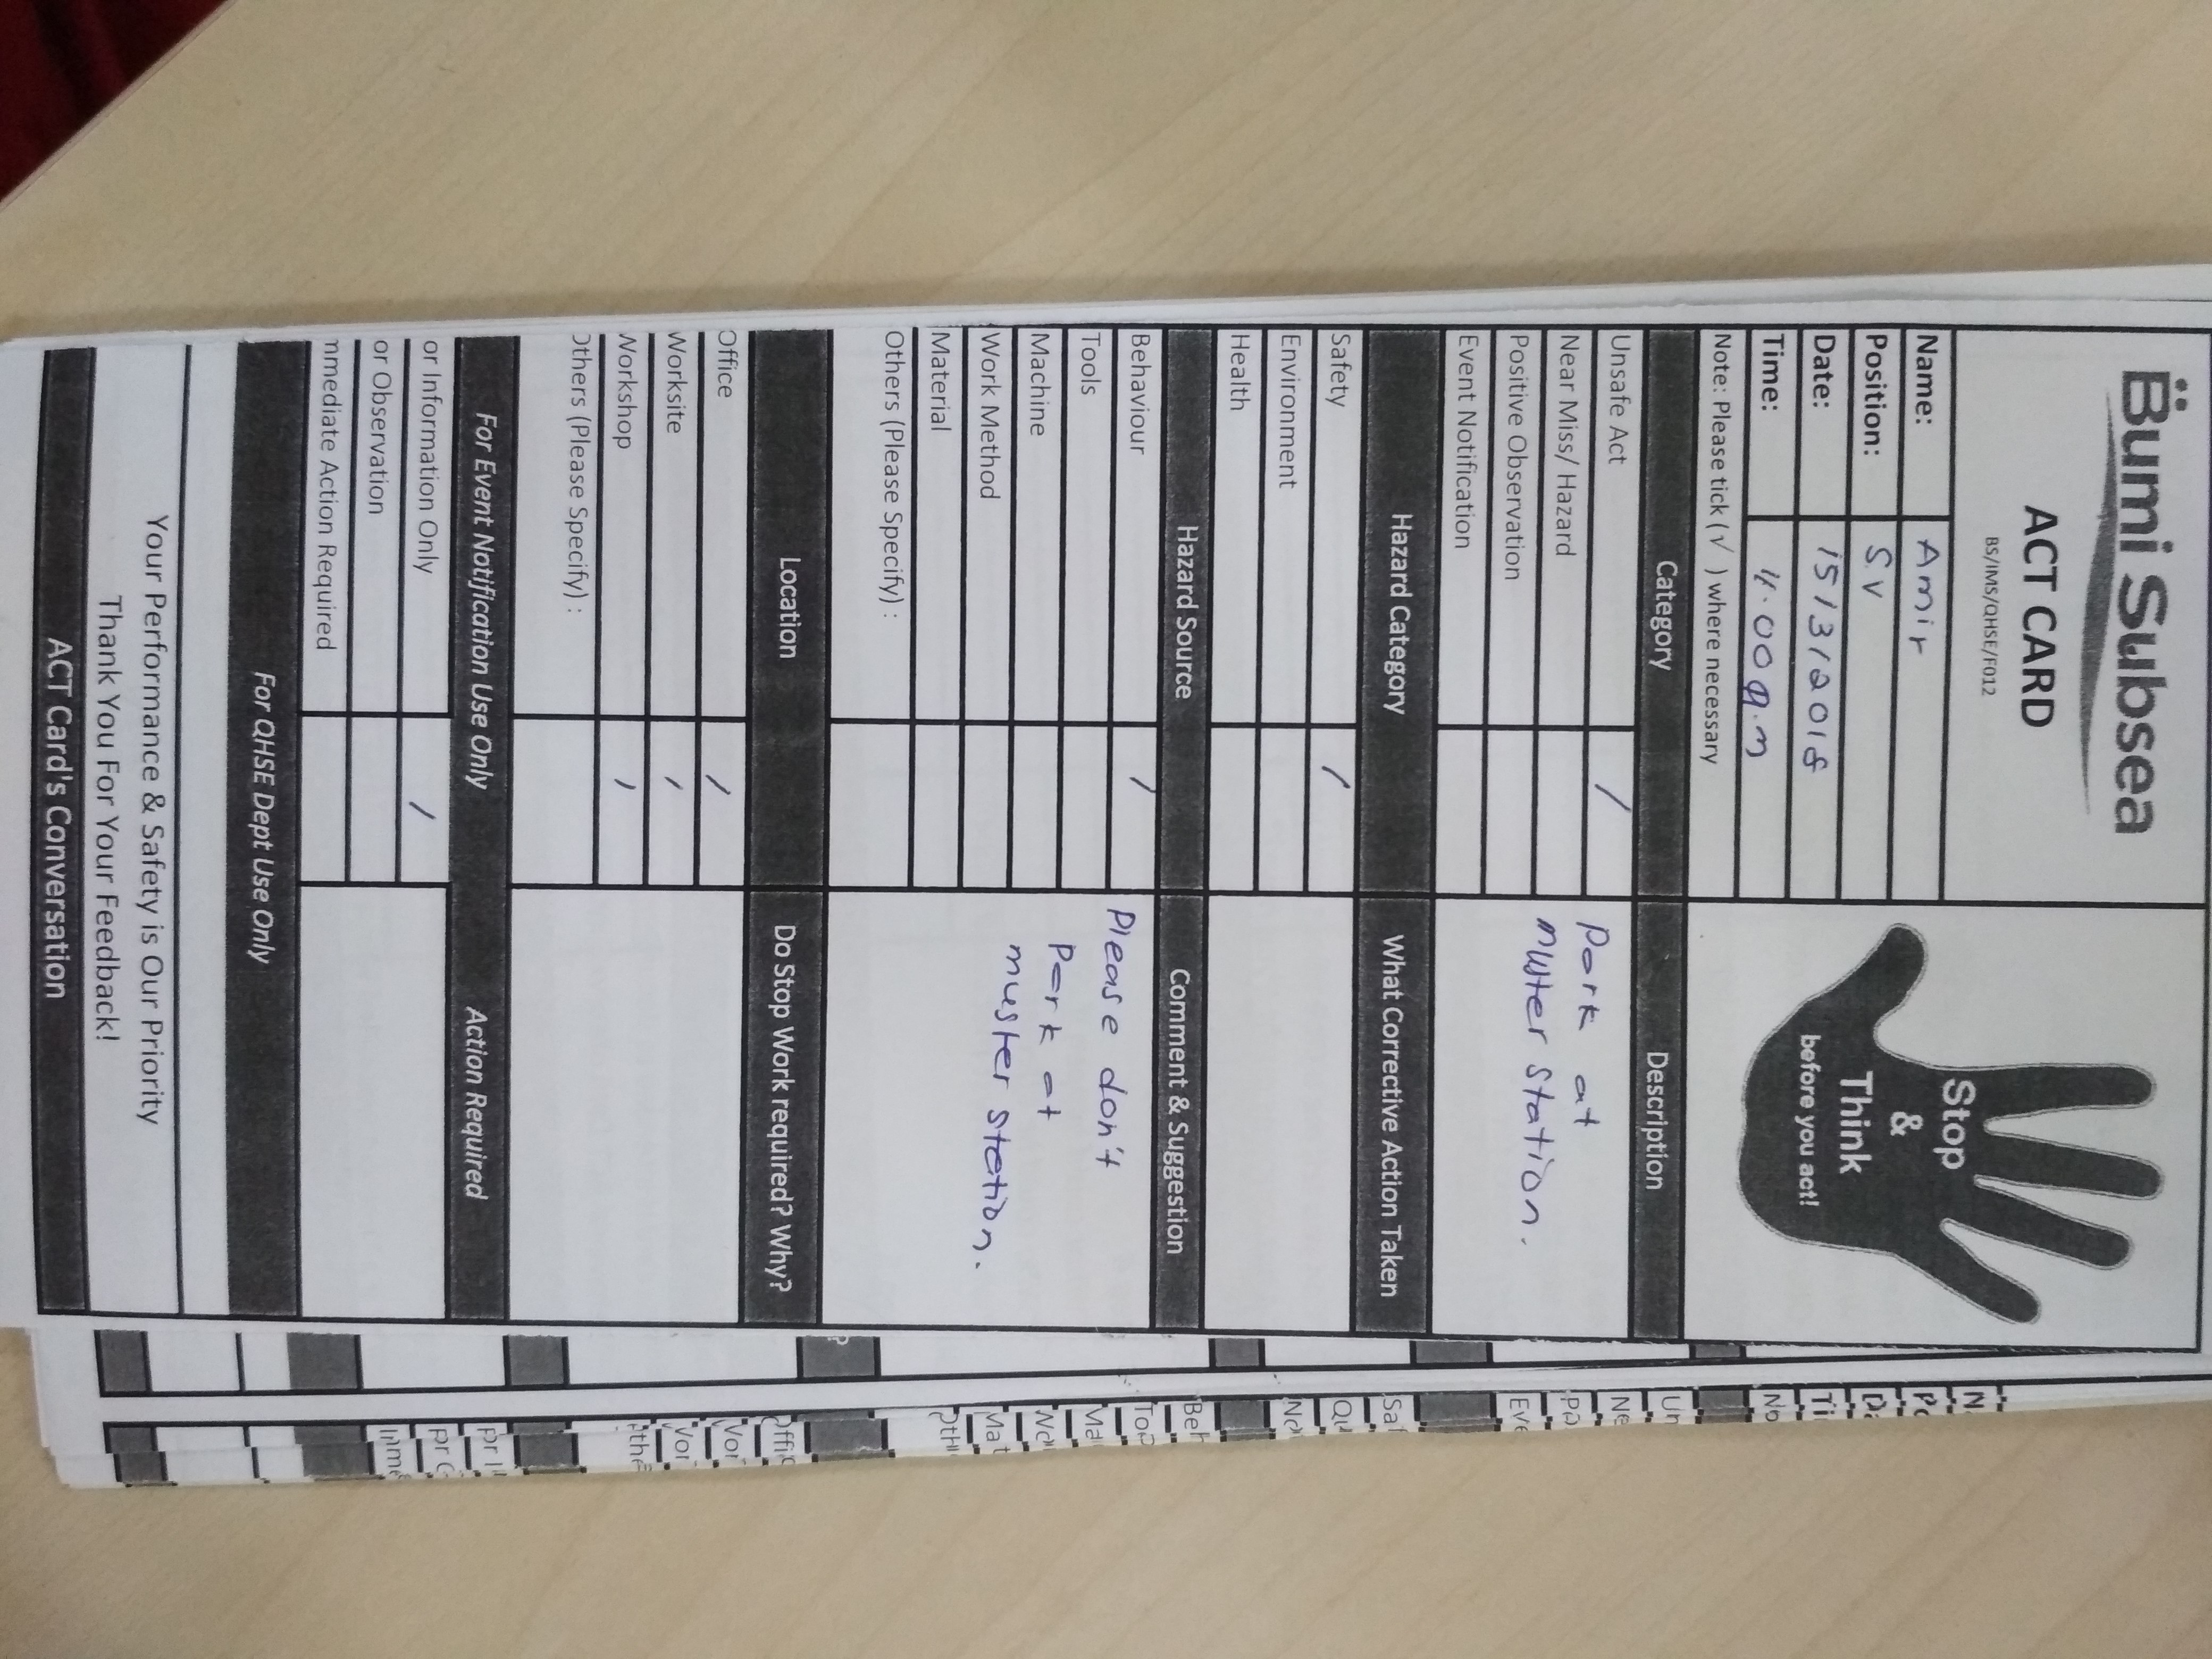 Bumi Subsea
ACT CARD
BS/IMS/QHSE/F012
Stop
&
Think
before you act!
Name: Amir
Position: S.V
Date: 15/3/2018
Time: 11.00 a.m
Note: Please tick (√ ) where necessary
Category Description
Unsafe Act /
Near Miss/ Hazard
Positive Observation
Event Notification
Park at
muster station.
Hazard Category What Corrective Action Taken
Safety /
Environment
Health
Hazard Source Comment & Suggestion
Behaviour /
Tools
Machine
Work Method
Material
Others (Please Specify) :
Please don't
Park at
muster station.
Location Do Stop Work required? Why?
Office /
Worksite /
Workshop /
Others (Please Specify) :
For Event Notification Use Only Action Required
or Information Only /
or Observation
mmediate Action Required
For QHSE Dept Use Only
Your Performance & Safety is Our Priority
Thank You For Your Feedback!
ACT Card's Conversation